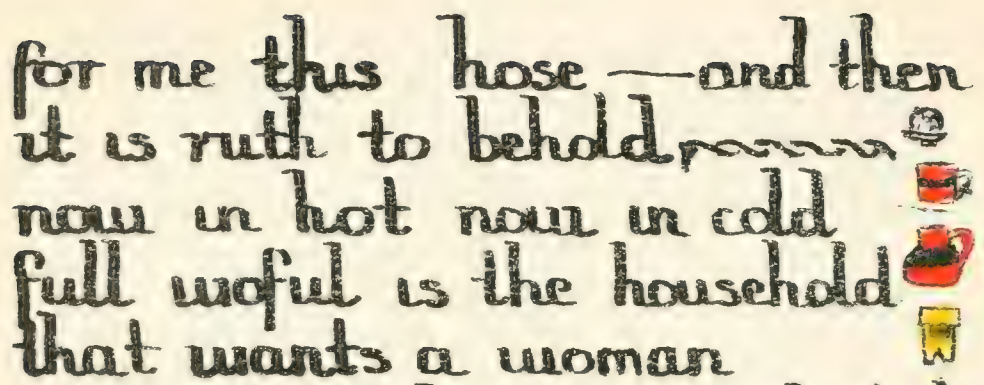 for me this hose — and then
it is ruth to behold
now in hot now in cold
full woful is the household
that wants a woman